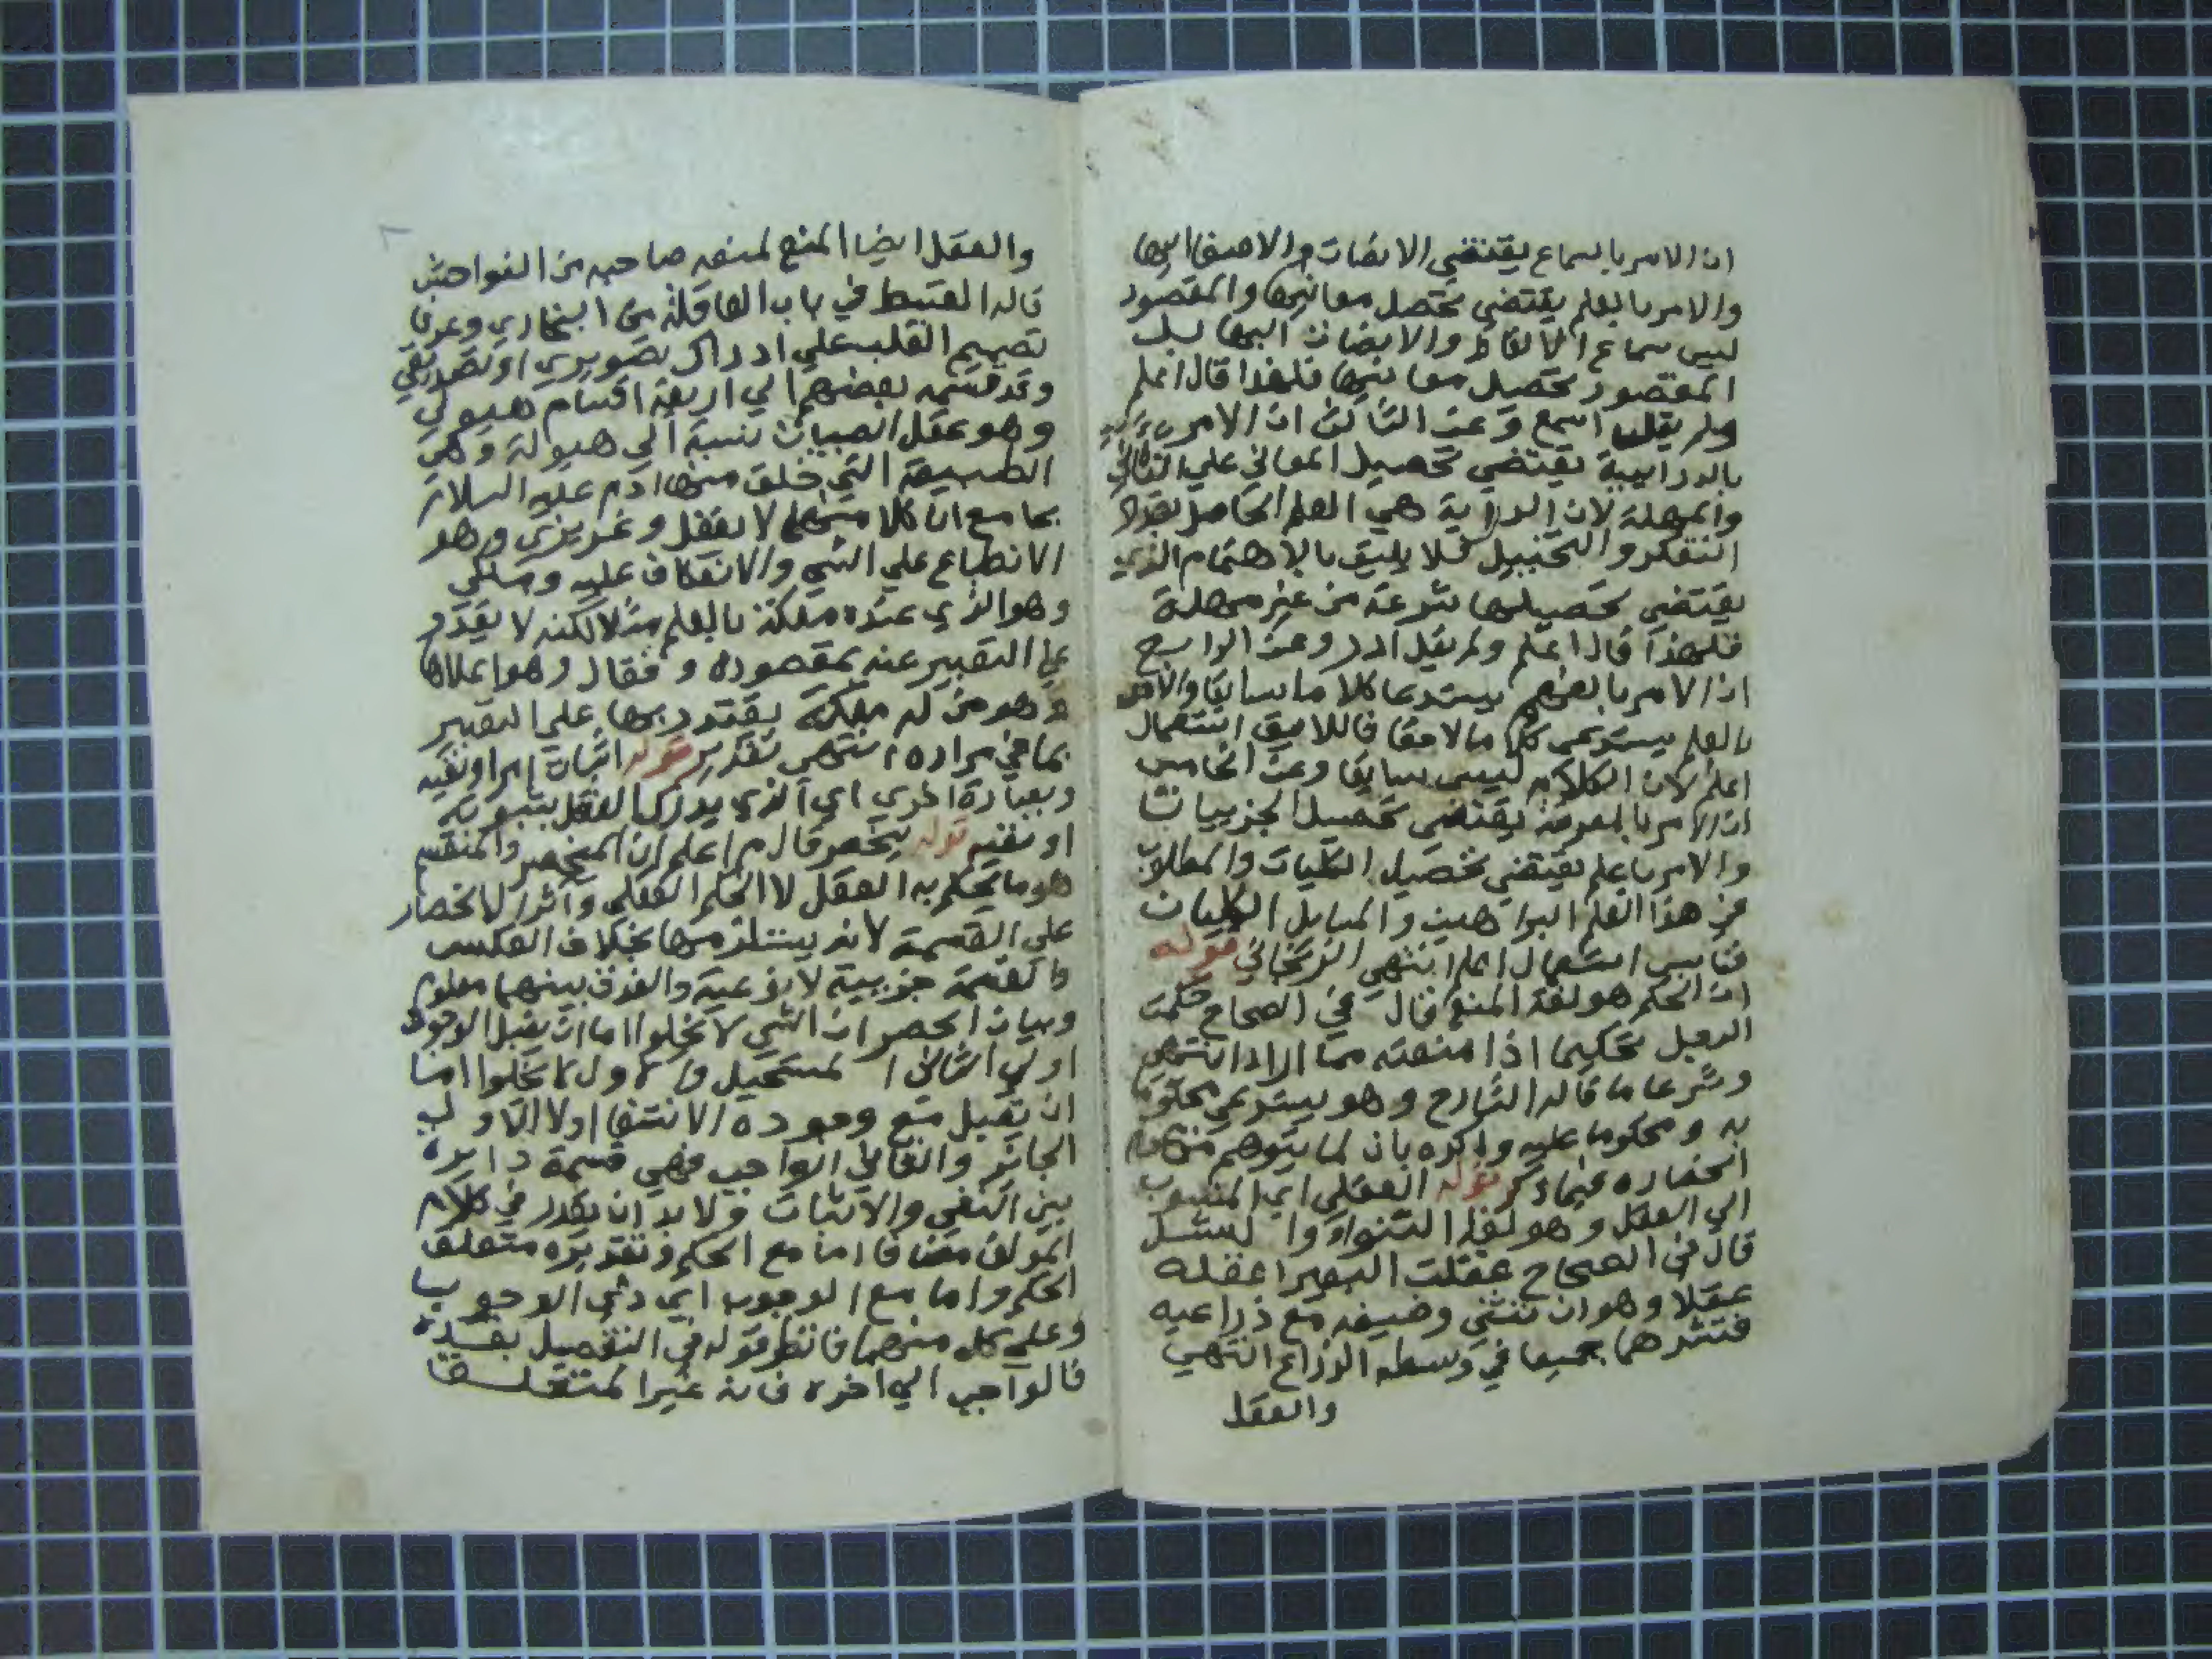 ان الامر بالسماع يقتضي الانصات والاصغا اليها
والامر بالعلم يقتضي تحصل معانيها والمقصود
ليس سماع الالفاظ والانصات اليها بل
المقصود تحصيل معانيها فلهذا قال اعلم
ولم يقل اسمع وعن الثالث ان الامر
بالدرايية يقتضي تحصيل المعاني علي التاني
والمهلة لان الدراية هي العلم الحاصل بعد
التفكر والتخييل فلا يليق بالاهتمام الذي
يقتضي تحصيلها بسرعة من غير مهلة
فلهذا قال اعلم ولم يقل ادر وعن الرابع
ان الامر بالفهم يستدعا كلاما سابقا والامر
بالعلم يستدعي كلاما لاحقا فاللايق استعمال
اعلم لان الكلام ليس سابقا وعن الخامس
ان الامر بالمعرفة يقتضي تحصيل الجزييات
والامر باعلم يقتضي تحصيل الكليات والمطلوب
من هذا العلم البراهين والمسايل الكليات
فناسب استعمال اعلم انتهي الزنخاني قوله
ان الحكم هو لغة المنع قال في الصحاح حكمت
الرجل تحكيما اذا منعته مما اراد انتهي
وشرعا ما قاله الشارح وهو يستدعي محكوما
به ومحكوما عليه واكده بان لما يتوهم من عدم
انحصاره فيما ذكر قوله العقلي اي المنسوب
الي العقل وهو لغة
قال في الصحاح عقلت البعير اعقله
عقلا وهو ان تنثني وضيفه مع ذراعيه
فتشدهما جميعا في وسط الذراع انتهي
والعقل
والعقل ايضا المنع لمنعه صاحبه من الفواحش
قاله القسط في باب العاقلة من البخاري وعرفا
تصميم القلب علي ادراك تصويري او تصديقي
وقد قسمه بعضهم الي اربعة اقسام هيولي
وهو عقل الصبيان نسبة الي هيولة وهي
الطبيعة التي خلق منها ادم عليه السلام
بجامع ان كلا منهما لا يعقل وغريزي وهو
الانطباع علي الشي والانعكاف عليه وملكي
وهو الذي عنده ملكة بالعلم مثلا لكنه لا يقدر
علي التعبير عنه بمقصوده وفعال وهو اعلاها
وهو من له ملكة يقتدر بها علي التعبير
بما في مراده انتهي تقدير قوله اثبات امر او نفيه
وبعبارة اخري اي الذي يدرك العقل ثبوته
او نفيه قوله ينحصر قال م اعلم ان المنحصر والمنقسم
هو ما يحكم به العقل لا الحكم العقلي واثر الانحصار
علي القسمة لانه يستلزمها بخلاف العكس
والقسمة جزيية لا نوعية والفرق بينهما معلوم
وبيان الحصر ان الشي لا يخلوا اما ان يقبل الوجود
اولي الثاني المستحيل والاول لا يخلوا اما
ان يقبل مع وجوده الانتفا اولا الاول
الجائز والثاني الواجب فهي قسمة دايرة
بين النفي والاثبات ولا بد ان يقدر في كلام
المولف مضافا اما مع الحكم وتقديره متعلق
الحكم واما مع الوجوب اي ذي الوجوب
وعلي كل منهما فانظر قوله في التفصيل بعده
فالواجب الي اخره فانه غير المتعلق